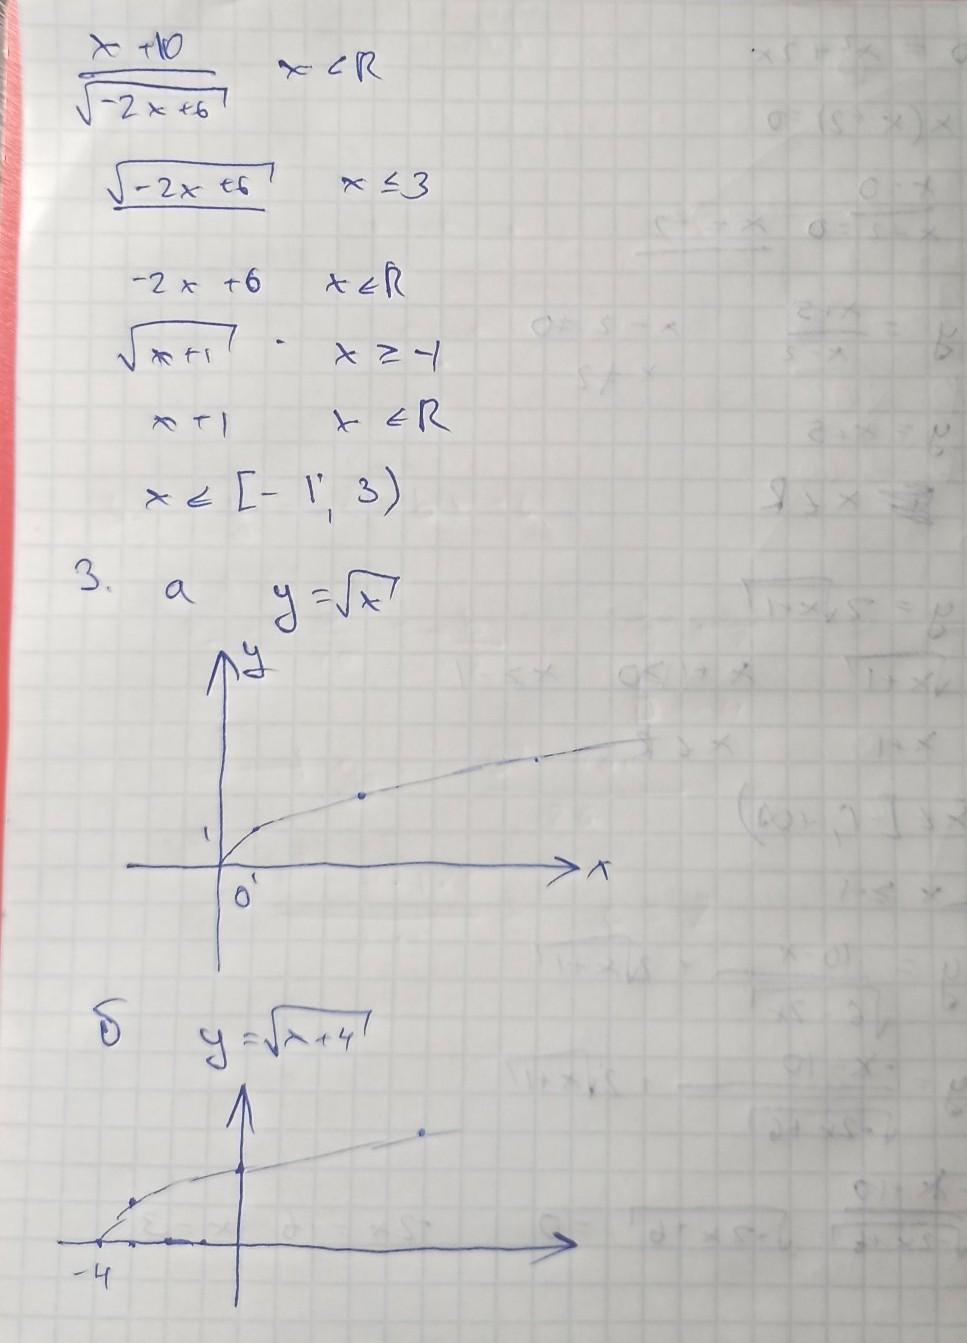 x+10
√-2x+6 x∈R
√-2x+6 x≤3
-2x+6 x∈R
√x+1 · x≥-1
x+1 x∈R
x∈[-1; 3)
3. а y=√x
y
1
0 1 x
б y=√x+4
-4